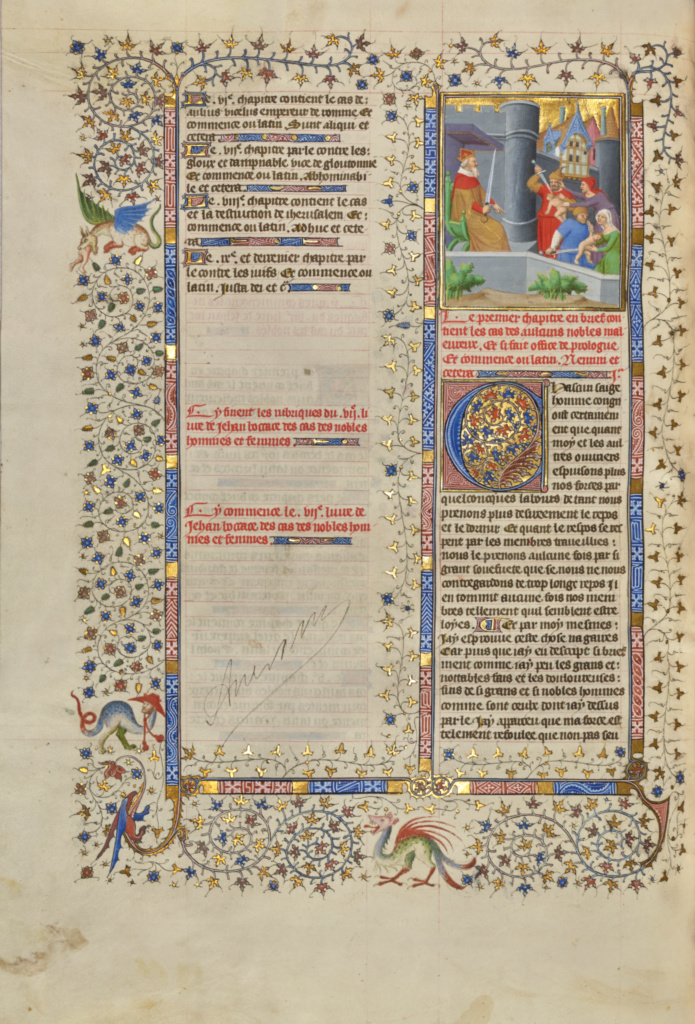 Le. vi͛. chapitre contient le cas de:
aulus vicelius empereur de romme Et
commence ou latin. Sunt aliqui et
cetera
Le. vii͛. chapitre parle contre les:
gloux et dampnable vice de gloutonnie
Et commence ou latin. Abhominabi
le et cetera.
Le. viii͛. chapitre contient le cas
et la destruction de iherusalem Et:
commence ou latin. Ad huc et cete
ra
Le. ix͛. et derrenier chapitre par
le contre les iuifs Et commence ou
latin. Justa dei et c̃
Cy finent les rubriques du. vii. li
ure de Jehan bocace des cas des nobles
hommes et femmes
Cy commence le. vii͛. liure de
Jehan bocace. des cas des nobles hom
mes et femmes
Le premier chapitre en brief con
tient les cas des aulcuns nobles mal
eureux. Et si fait office de prologue.
Et commence ou latin. Nemini et
cetera j͛.
Chascun saige
homme congn
oist certainem
ent que quant
moy et les aul
tres ouuriers
espuisons plus
nos forces par
quelconcques labours de tant nous
prenons plus desireement le repos
et le dormir Et quant le respos se res
pent par les membres traueillies:
nous le prenons aulcune fois par si
grant souefuete que se nous ne nous
contregardons de trop longe repos il
en dormit aucune fois nos mem
bres tellement quil semblent estre
loyes. Et par moy mesmes:
Jay esprouue ceste chose na gaires
Car puis que iay eu descript si brief
ment comme iay peu les grans et:
nottables fais et les doulouteuses:
fins de si grans et si nobles hommes
comme sont ceulx dont iay dessus
parle Jay apparceu que ma force est
telement refoulee que non pas seu